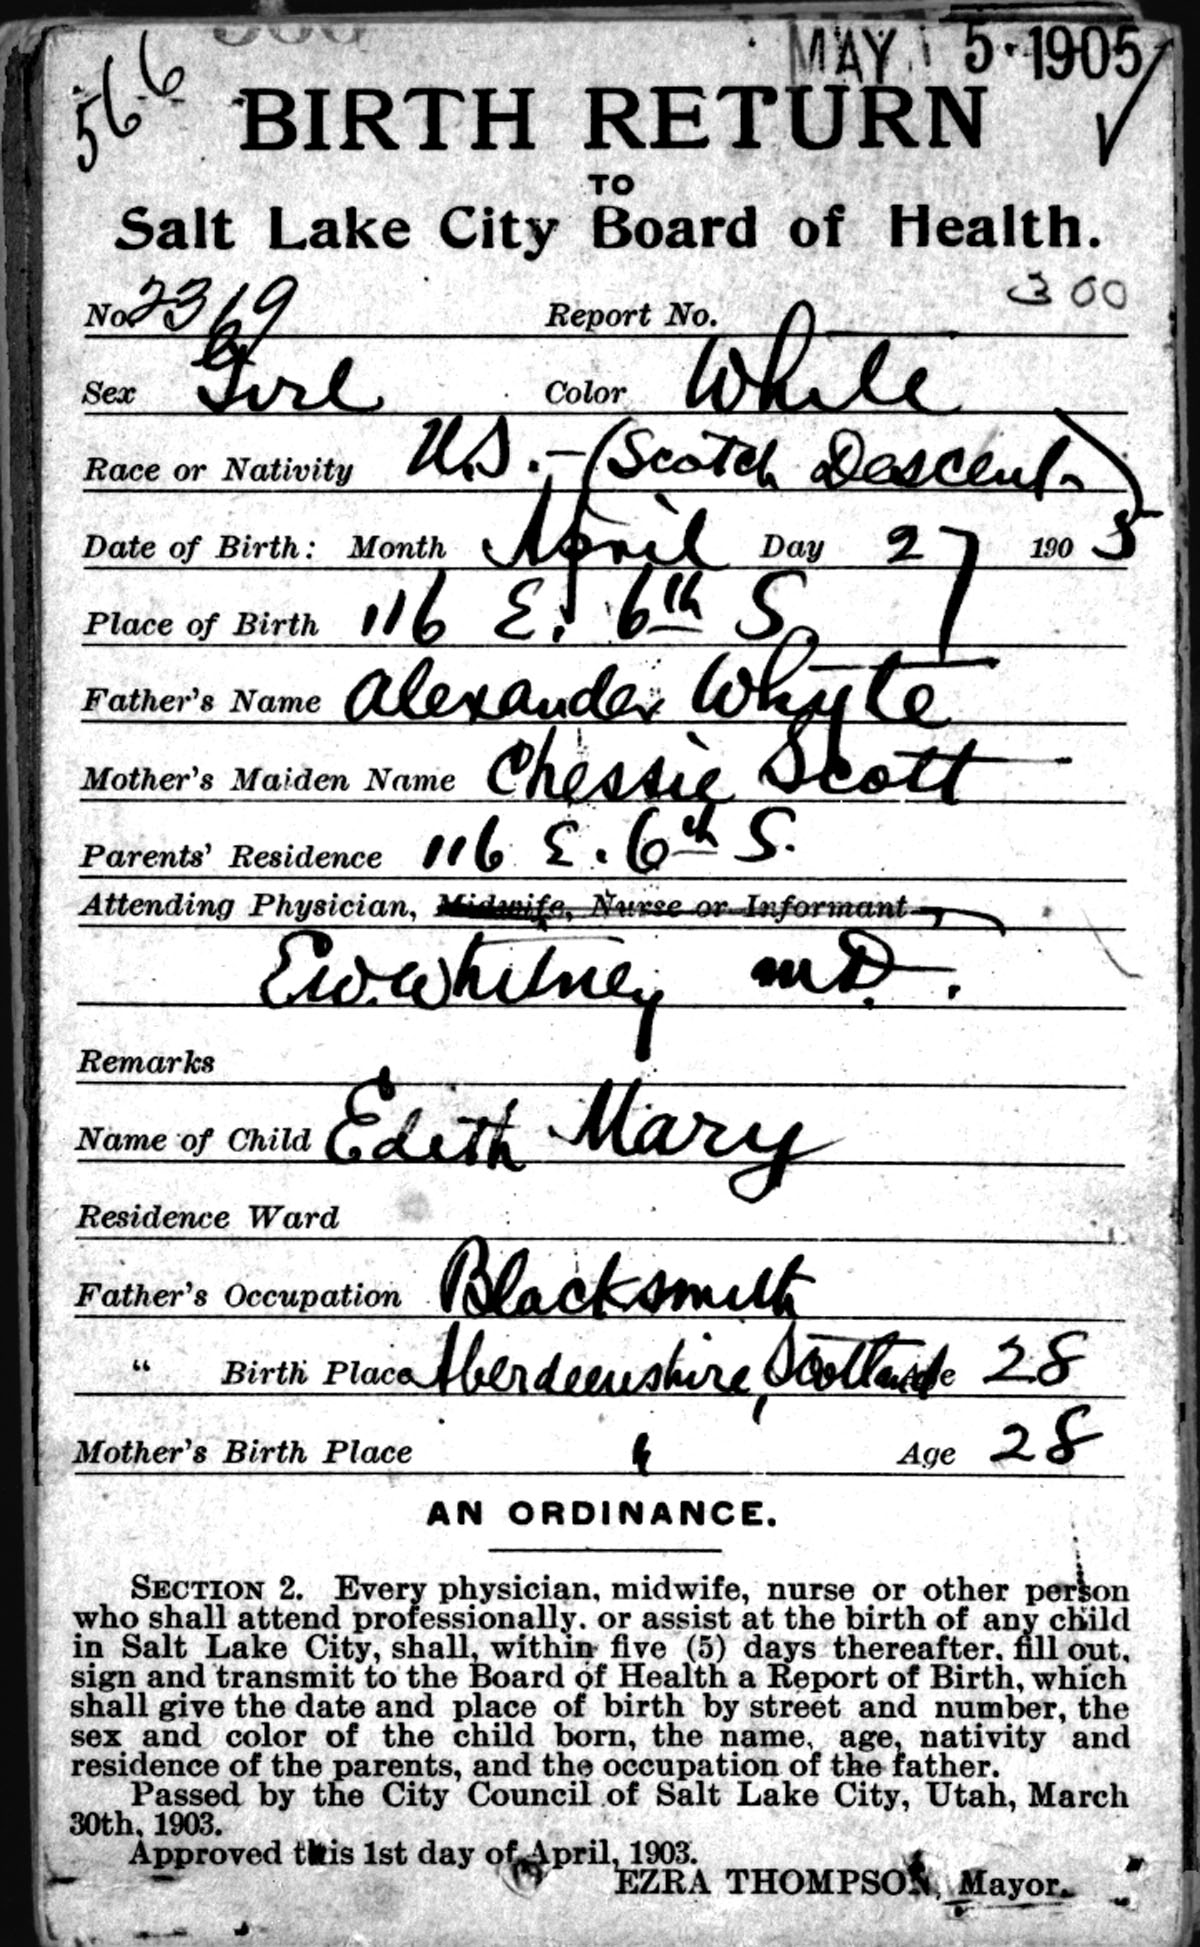 MAY 5 1905
566
BIRTH RETURN
TO
Salt Lake City Board of Health.
300
No. 2319 Report No.
Sex Girl Color White
Race or Nativity U.S. - (Scotch Descent)
Date of Birth: Month April Day 27 1905
Place of Birth 116 E. 6th S.
Father's Name Alexander Whyte
Mother's Maiden Name Chessie Scott
Parents' Residence 116 E. 6th S.
Attending Physician, Midwife, Nurse or Informant
E.W. Whitney M.D.
Remarks
Name of Child Edith Mary
Residence Ward
Father's Occupation Blacksmith
" Birth Place Aberdeenshire, Scotland Age 28
Mother's Birth Place " Age 28
AN ORDINANCE.
SECTION 2. Every physician, midwife, nurse or other person
who shall attend professionally, or assist at the birth of any child
in Salt Lake City, shall, within five (5) days thereafter, fill out,
sign and transmit to the Board of Health a Report of Birth, which
shall give the date and place of birth by street and number, the
sex and color of the child born, the name, age, nativity and
residence of the parents, and the occupation of the father.
Passed by the City Council of Salt Lake City, Utah, March
30th, 1903.
Approved this 1st day of April, 1903.
EZRA THOMPSON, Mayor.